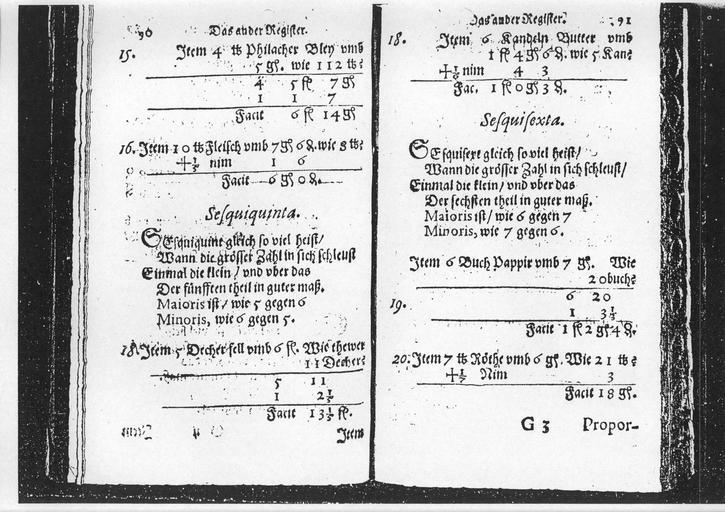 90 Das ander Register.
15. Item 4 ℔ Philacher Bley vmb
5 gl. wie 112 ℔:
4 5 fl 7 gl
1 1 7
Facit 6 fl 14 gl
16. Item 10 ℔ Fleisch vmb 7 gl 6 ₰. wie 8 ℔:
÷ 1/5 nim 1 6
Facit 6 gl 0 ₰.
Sesquiquinta.
SEsquiquint gleich so viel heist/
Wann die grösser Zahl in sich schleust
Einmal die klein/ vnd vber das
Der fünfften theil in guter maß.
Maioris ist/ wie 5 gegen 6
Minoris, wie 6 gegen 5.
Item 5 Decher fell vmb 6 fl. Wie thewer
11 Decher:
5 11
1 2 1/5
Facit 13 1/5 fl.
Item
Das ander Register. 91
18. Item 6 Kandeln Butter vmb
1 fl 4 gl 6 ₰. wie 5 Kan:
nim 4 3
Fac. 1 fl 0 gl 3 ₰.
Sesquisexta.
SEsquisext gleich so viel heist/
Wann die grösser Zahl in sich schleust/
Einmal die klein/ vnd vber das
Der sechsten theil in guter maß.
Maioris ist/ wie 6 gegen 7
Minoris, wie 7 gegen 6.
Item 6 Buch Pappir vmb 7 gl. Wie
20 buch:
6 20
19.
1 3 1/3
Facit 1 fl 2 gl 4 ₰.
20. Item 7 ℔ Röthe vmb 6 gl. Wie 21 ℔:
Nim 3
Facit 18 gl.
G 3 Propor-